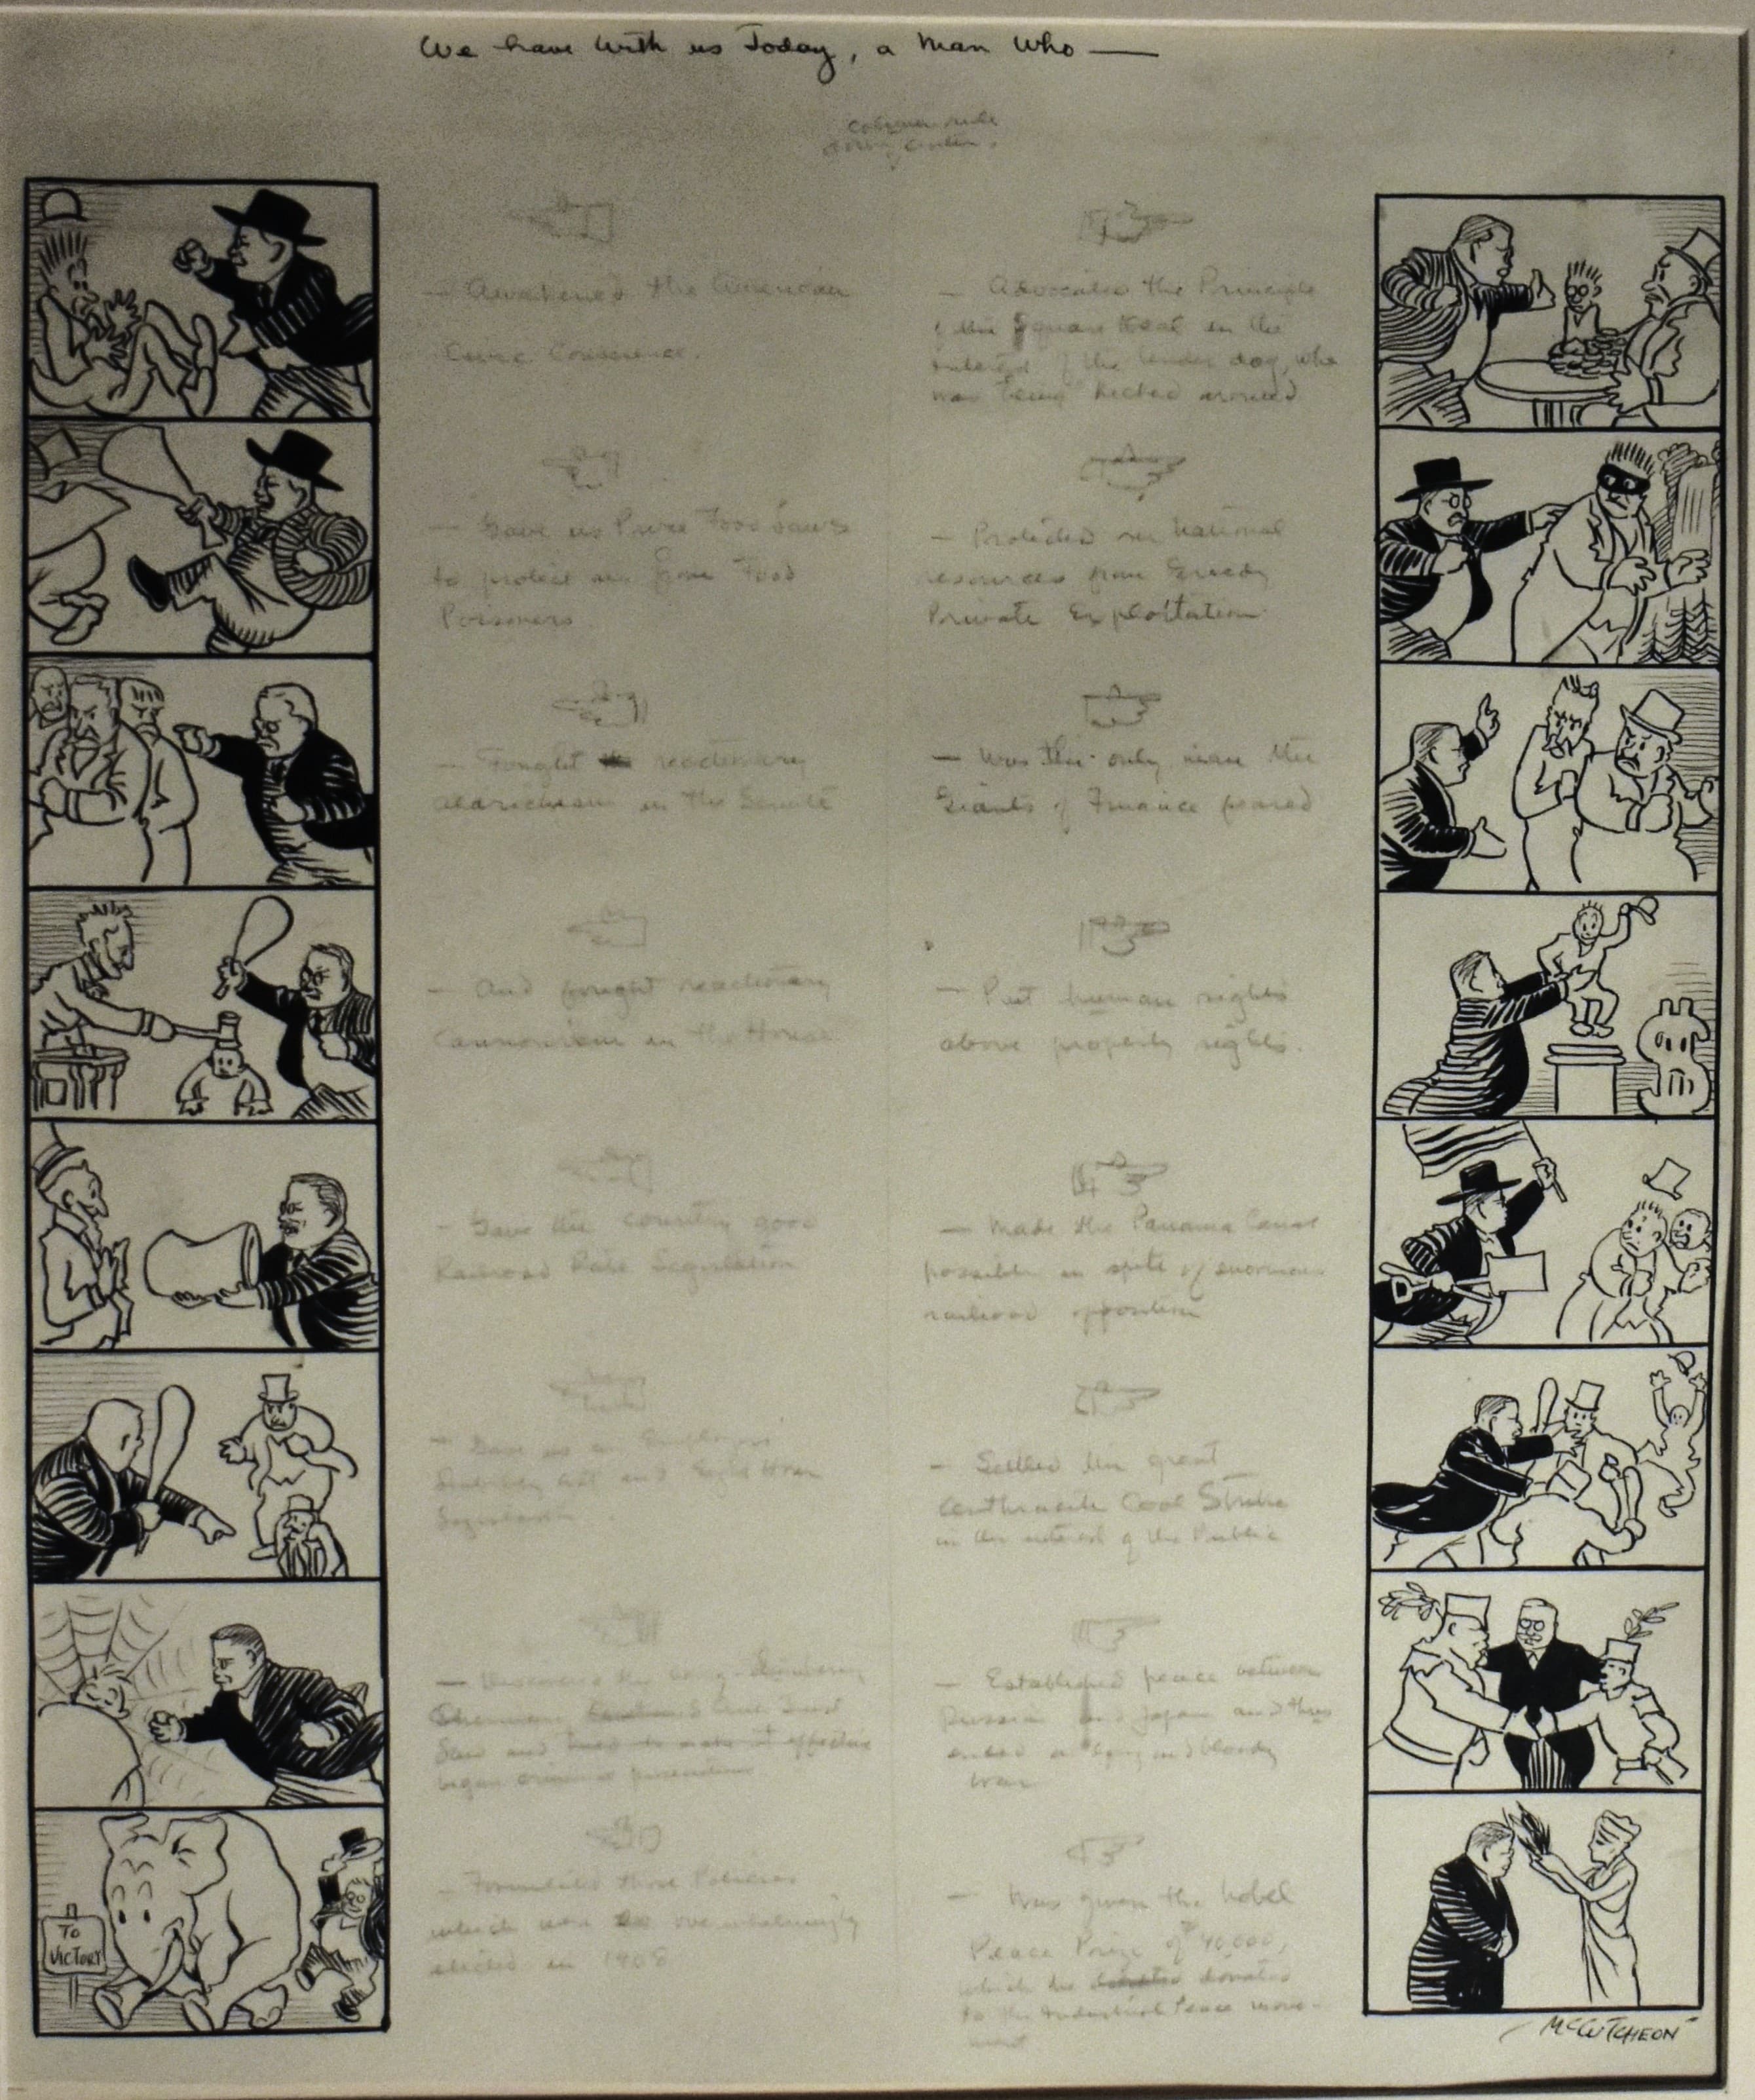 We have with us Today, a Man Who —
column rule
down center.
— Awakened the American
Civic Conscience.
— Gave us Pure Food Laws
to protect us from Food
Poisoners.
— Fought reactionary
Aldrichism in the Senate
— And fought reactionary
Cannonism in the House
— Gave the country good
Railroad Rate Legislation
— Gave us an Employers
Liability act and Eight Hour
Legislation
— the long-slumbering
Sherman Anti Trust
Law and effective
began criminal prosecutions
— Formulated those Policies
which were so overwhelmingly
elected in 1908
TO
VICTORY
— Advocated the Principle
of the Square Deal in the
interest of the under dog, who
was being kicked around
— Protected our national
resources from Greedy
Private Exploitation
— Was the only man the
Giants of Finance feared
— Put human rights
above property rights.
— Made the Panama Canal
possible in spite of enormous
railroad opposition
— Settled the great
Anthracite Coal Strike
in the interest of the Public
— Established peace between
Russia and Japan and thus
ended a long and bloody
war
— Was given the Nobel
Peace Prize of $40,000,
which he donated
to the Industrial Peace move-
ment
McCUTCHEON